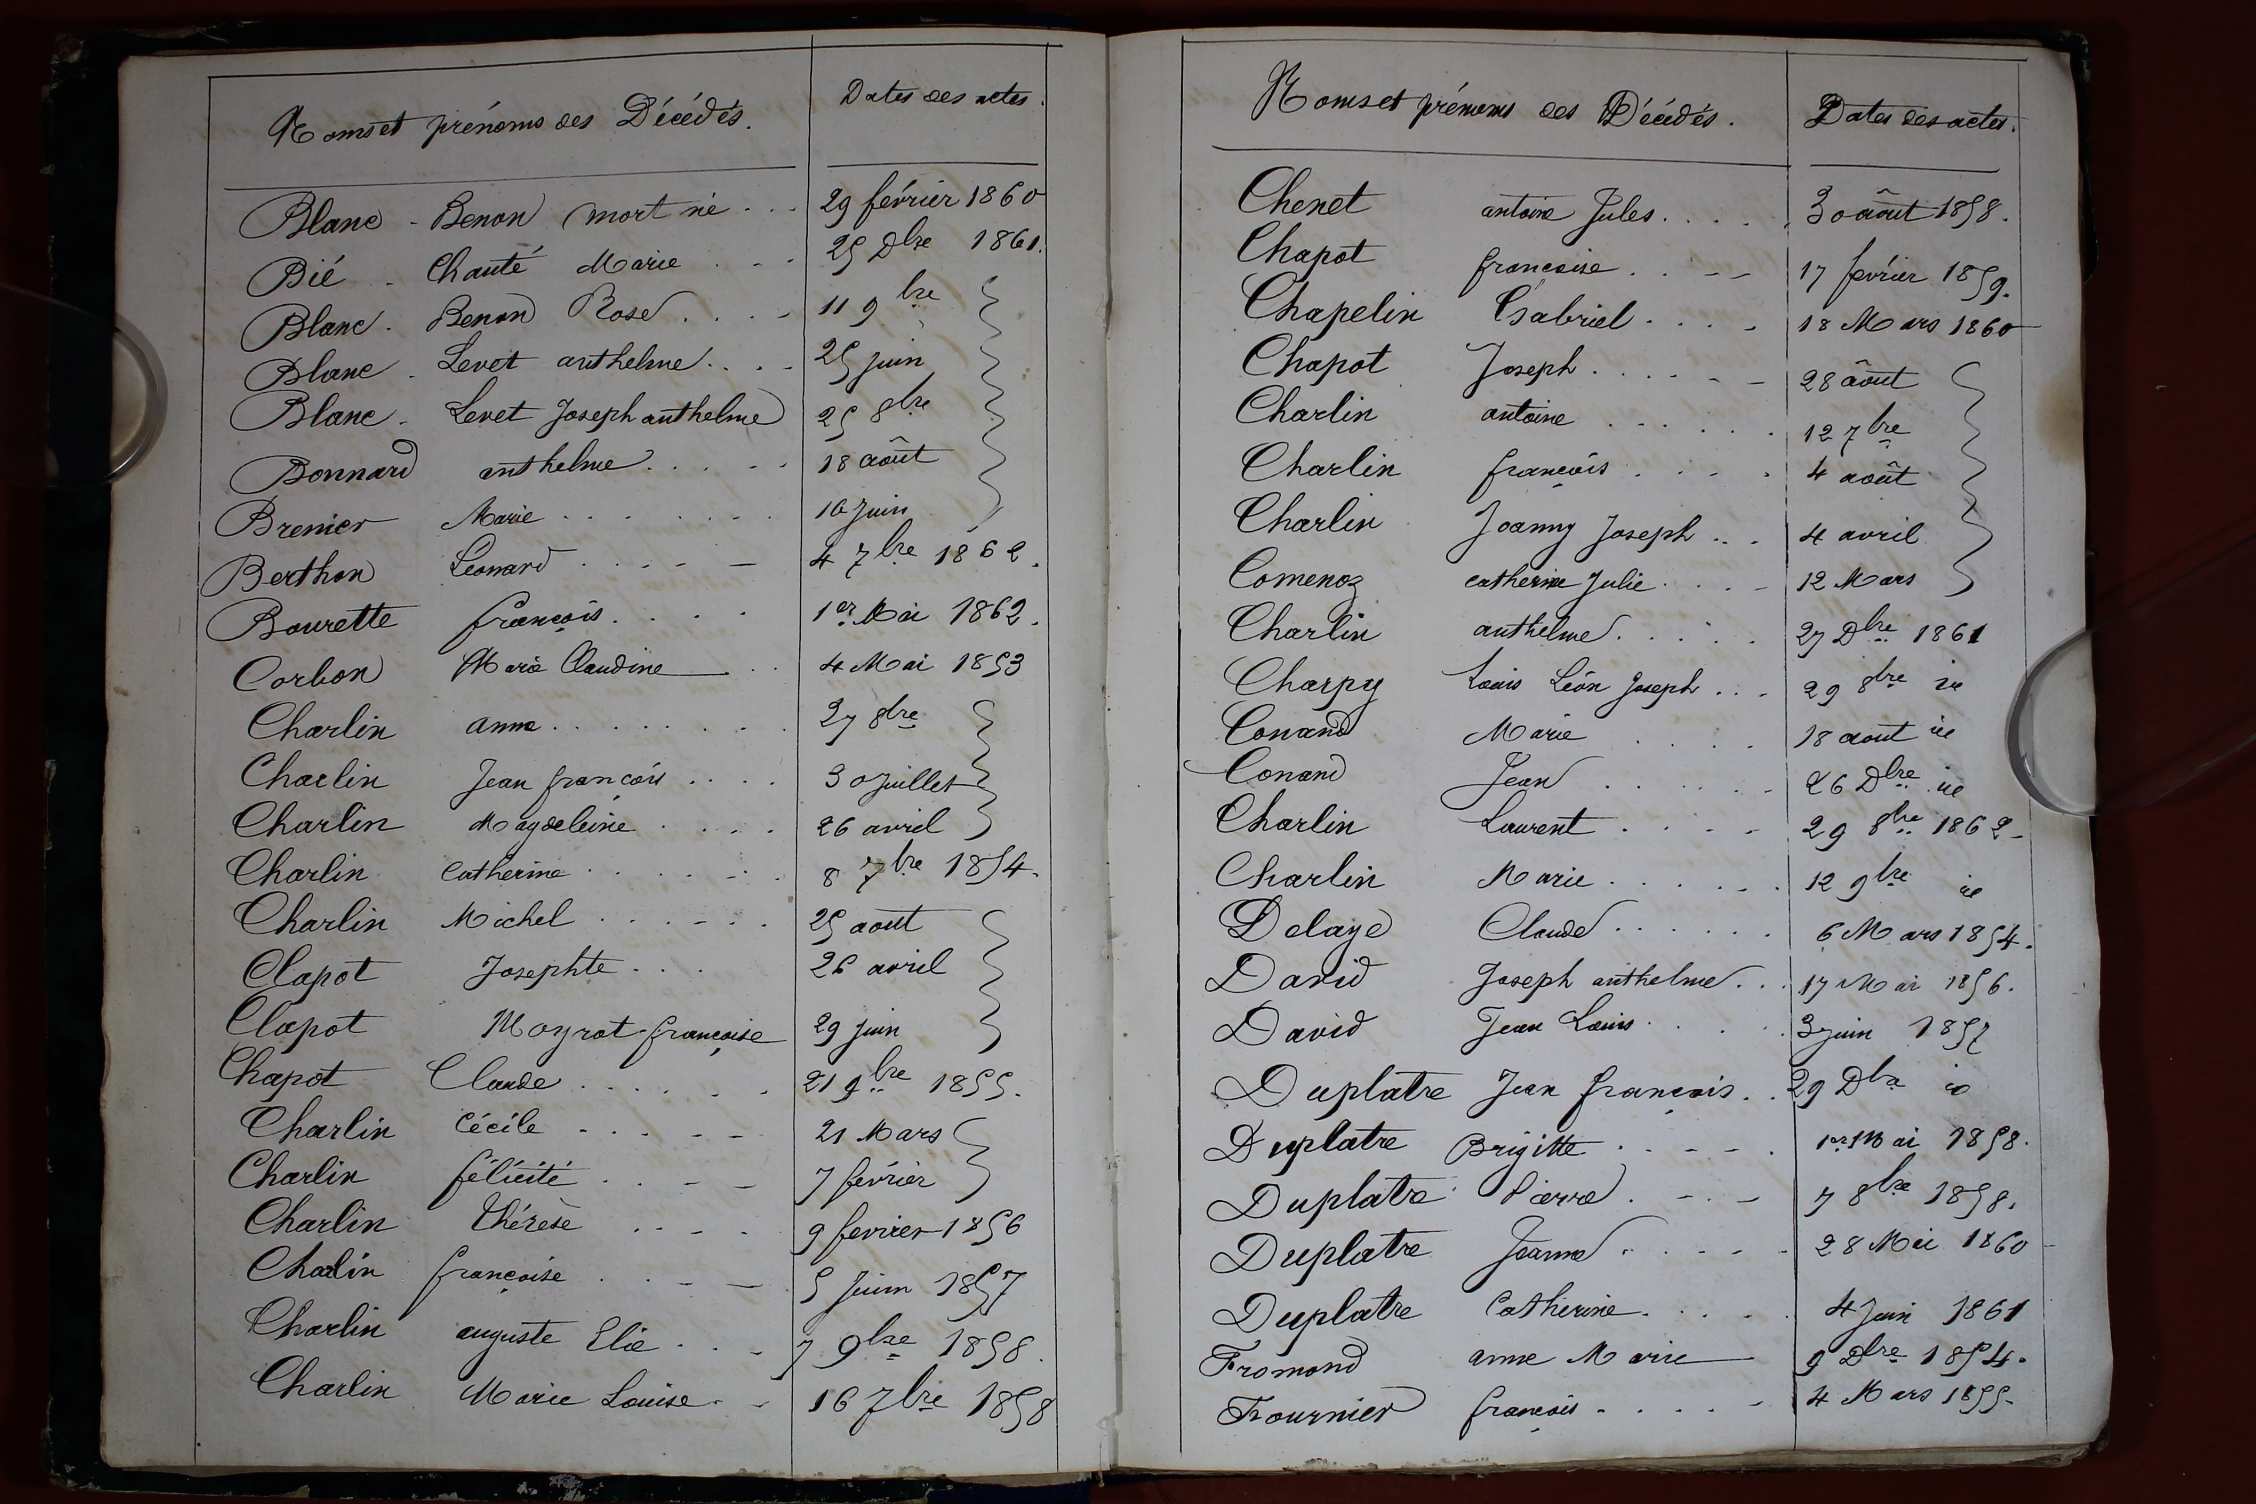 Noms et prénoms des Décédés. Dates des actes.
Blanc - Benon mort né . . . 29 février 1860
Bié - Chanté Marie . . . 25 Dbre 1861.
Blanc - Benon Rose . . . . 11 9bre
Blanc - Levet anthelme . . . . 25 juin
Blanc - Levet Joseph anthelme 25 8bre
Bonnard anthelme . . . . . 18 août
Brenier Marie . . . . . . . 10 juin
Berthon Léonard . . . . . 4 7bre 1862.
Bourette françois . . . . 1er Mai 1862.
Corbon Marie Claudine . . 4 Mai 1853
Charlin anne . . . . . . . 27 8bre
Charlin Jean françois . . . . 30 juillet
Charlin Magdeleine . . . . 26 avril
Charlin Catherine . . . . . . 8 7bre 1854.
Charlin Michel . . . . . . 25 aout
Clapot Josephte . . . 26 avril
Clapot Moyrot françoise 29 juin
Chapot Claude . . . . . . 21 9bre 1855.
Charlin Cécile . . . . . 21 Mars
Charlin félicité . . . . 7 février
Charlin Thérèse . . . . 9 fevrier 1856
Chalin françoise . . . . 5 Juin 1857
Charlin auguste Elie . . . 7 9bre 1858.
Charlin Marie Louise . . 16 7bre 1858
Noms et prénoms des Décédés. Dates des actes.
Chenet antoine Jules . . . . . 30 août 1858.
Chapot francoise . . . . 17 février 1859.
Chapelin Gabriel . . . . 18 Mars 1860
Chapot Joseph . . . . . . 28 août
Charlin antoine . . . . . . 12 7bre
Charlin françois . . . . 4 août
Charlin Joanny Joseph . . . 4 avril
Comenoz catherine Julie . . . 12 Mars
Charlin anthelme . . . . . 27 Dbre 1861
Charpy Louis Léon Joseph . . . 29 8bre ie
Conand Marie . . . . 18 aout ie
Conand Jean . . . . . . 26 Dbre ie
Charlin Laurent . . . . 29 8bre 1862
Charlin Marie . . . . . . 12 9bre ie
Delaye Claude . . . . . . 6 Mars 1854.
David Joseph anthelme . . . 17 Mai 1856.
David Jean Louis . . . . . 3 juin 1857
Duplatre Jean françois . . 29 Dbre ie
Duplatre Brigitte . . . . . 1er Mai 1858.
Duplatre Pierre . . . . 7 8bre 1858.
Duplatre Jeanne . . . . . 28 Mai 1860
Duplatre Catherine . . . . . 4 Juin 1861
Fromond anne Marie 9 Dbre 1854.
Fournier françois . . . . . 4 Mars 1855.